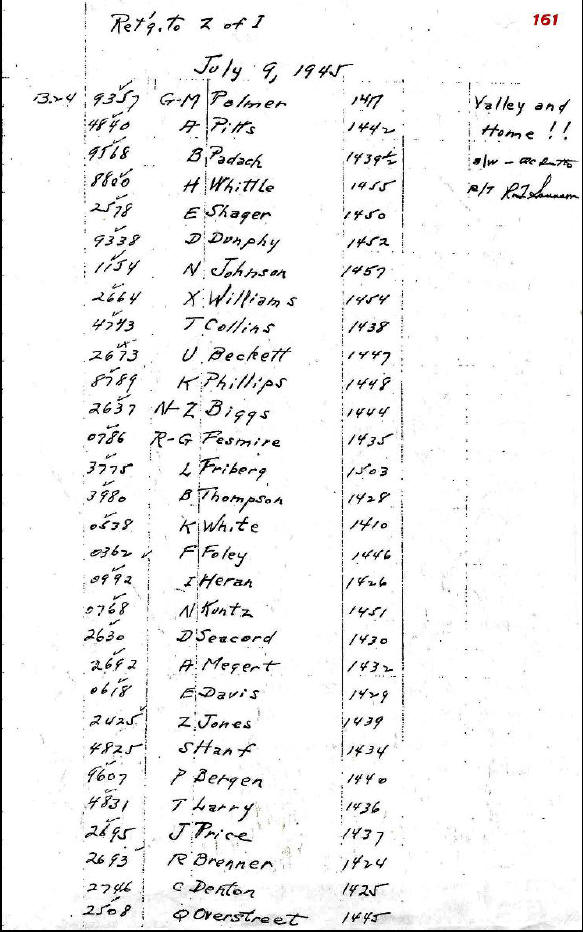 161
Ret'g. to Z of I
July 9, 1945
B-24 9357 G-M Palmer 1417 Valley and
4840 A Pitts 1442 Home !!
9568 B Padach 1439½ a/w -
8800 H Whittle 1455 P/T
2578 E Shager 1450
9338 D Dunphy 1452
1154 N Johnson 1457
2664 X Williams 1454
4743 T Collins 1438
2673 U Beckett 1447
8789 K Phillips 1448
2637 N-Z Biggs 1444
0786 R-G Pesmire 1435
3775 L Friberg 1503
3980 B Thompson 1428
0538 K White 1410
0362 ✓ F Foley 1446
0992 I Heran 1426
0768 N Kuntz 1451
2630 D Seacord 1430
2692 A Megert 1432
0618 E Davis 1429
2425 Z Jones 1439
4825 S Hanf 1434
9607 P Bergen 1440
4831 T Larry 1436
2695 J Price 1437
2693 R Brenner 1424
2746 C Denton 1425
2508 Q Overstreet 1445